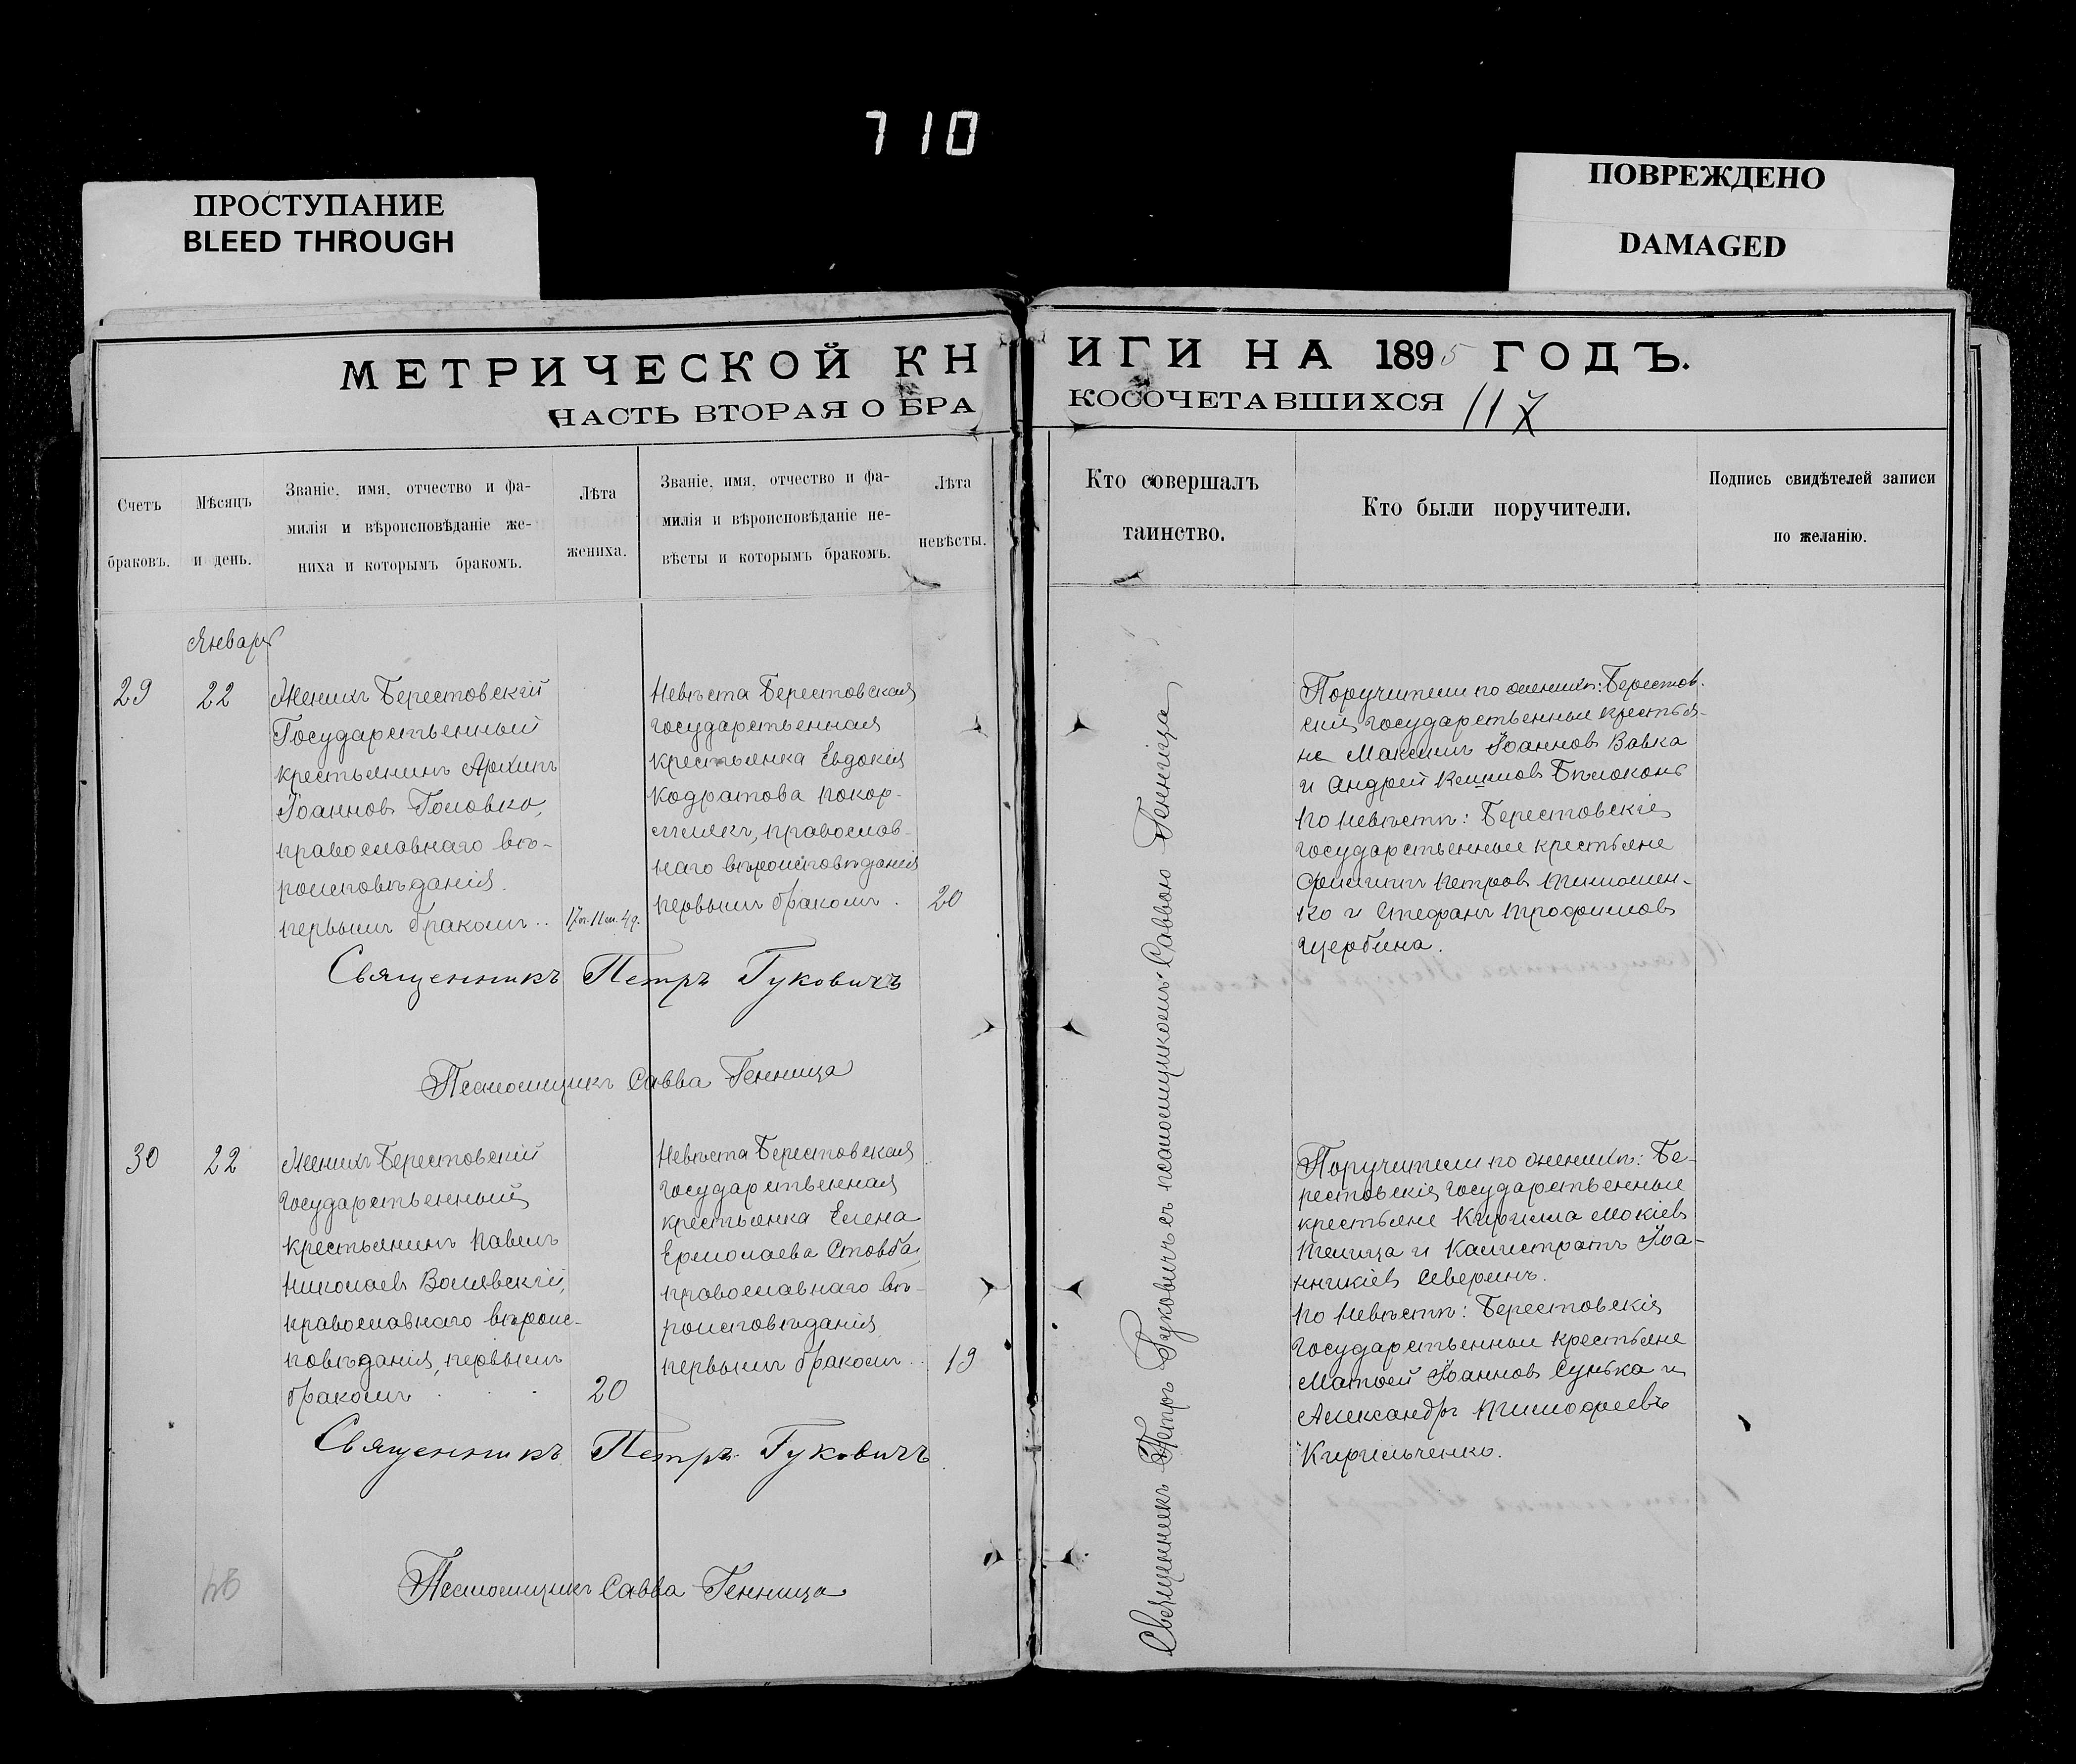 710
ПРОСТУПАНИЕ
BLEED THROUGH
ПОВРЕЖДЕНО
DAMAGED
МЕТРИЧЕСКОЙ КНИГИ НА 1895 ГОДЪ.
ЧАСТЬ ВТОРАЯ О БРАКОСОЧЕТАВШИХСЯ
Счетъ
браковъ.
Мѣсяцъ
и день.
Званіе, имя, отчество и фа-
милія и вѣроисповѣданіе же-
ниха и которымъ бракомъ.
Лѣта
жениха.
Званіе, имя, отчество и фа-
милія и вѣроисповѣданіе не-
вѣсты и которымъ бракомъ.
Лѣта
невѣсты.
Кто совершалъ
таинство.
Кто были поручители.
Подпись свидѣтелей записи
по желанію.
Января
29
22
Женихъ Берестовскій
Государственный
крестьянинъ Архипъ
Іоанновъ Головко,
православнаго вѣ-
роисповѣданія
первымъ бракомъ..
Невѣста Берестовская
государственная
крестьянка Евдокія
Кодратова
православ-
наго вѣроисповѣданія
первымъ бракомъ.
20
Священникъ Петръ Гуковичъ
Псаломщикъ Савва Генница
Поручители по женихѣ: Берестов-
скія государственные крестья-
не Максимъ Іоанновъ Вовка
и Андрей Климовъ Бѣлоконь
по невѣстѣ: Берестовскіе
государственные крестьяне
Филиппъ Петровъ Пилипен-
ко и Стефанъ Трофимовъ
Щербина.
30
22
Женихъ Берестовскій
государственный
крестьянинъ Павелъ
Николаевъ Волявскій,
православнаго вѣроис-
повѣданія, первымъ
бракомъ . . .
20
Невѣста Берестовская
государственная
крестьянка Елена
Ермолаева Стовба,
православнаго вѣ-
роисповѣданія
первымъ бракомъ..
19
Священникъ Петръ Гуковичъ
Псаломщикъ Савва Генница
Священникъ Петръ Гуковичъ съ псаломщикомъ Саввою Генница
Поручители по женихѣ: Бе-
рестовскія государственные
крестьяне Кирилла Мокіевъ
и Калистратъ Іоа-
нникіевъ Северинъ.
по невѣстѣ: Берестовскія
государственные крестьяне
Матвей Іоанновъ Сунька и
Александръ Тимофеевъ
Кирильченко.